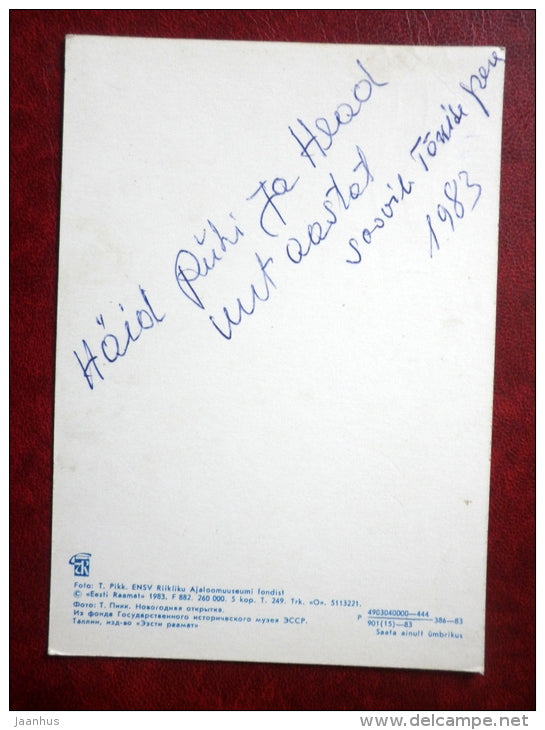 Häid Pühi Ja Head
uut aastat
soovib Tõxide pere
1983
Foto: T. Pikk. ENSV Riikliku Ajaloomuuseumi fondist
© «Eesti Raamat» 1983. F 882. 260 000. 5 kop. T. 249. Trk. «O». 5113221.
Фото: Т. Пикк. Новогодняя открытка.
Из фонда Государственного исторического музея ЭССР.
Таллин, изд-во «Ээсти раамат»
Р 4903040000—444
901(15)—83 386—83
Saata ainult ümbrikus
©jaanhus / delcampe.net